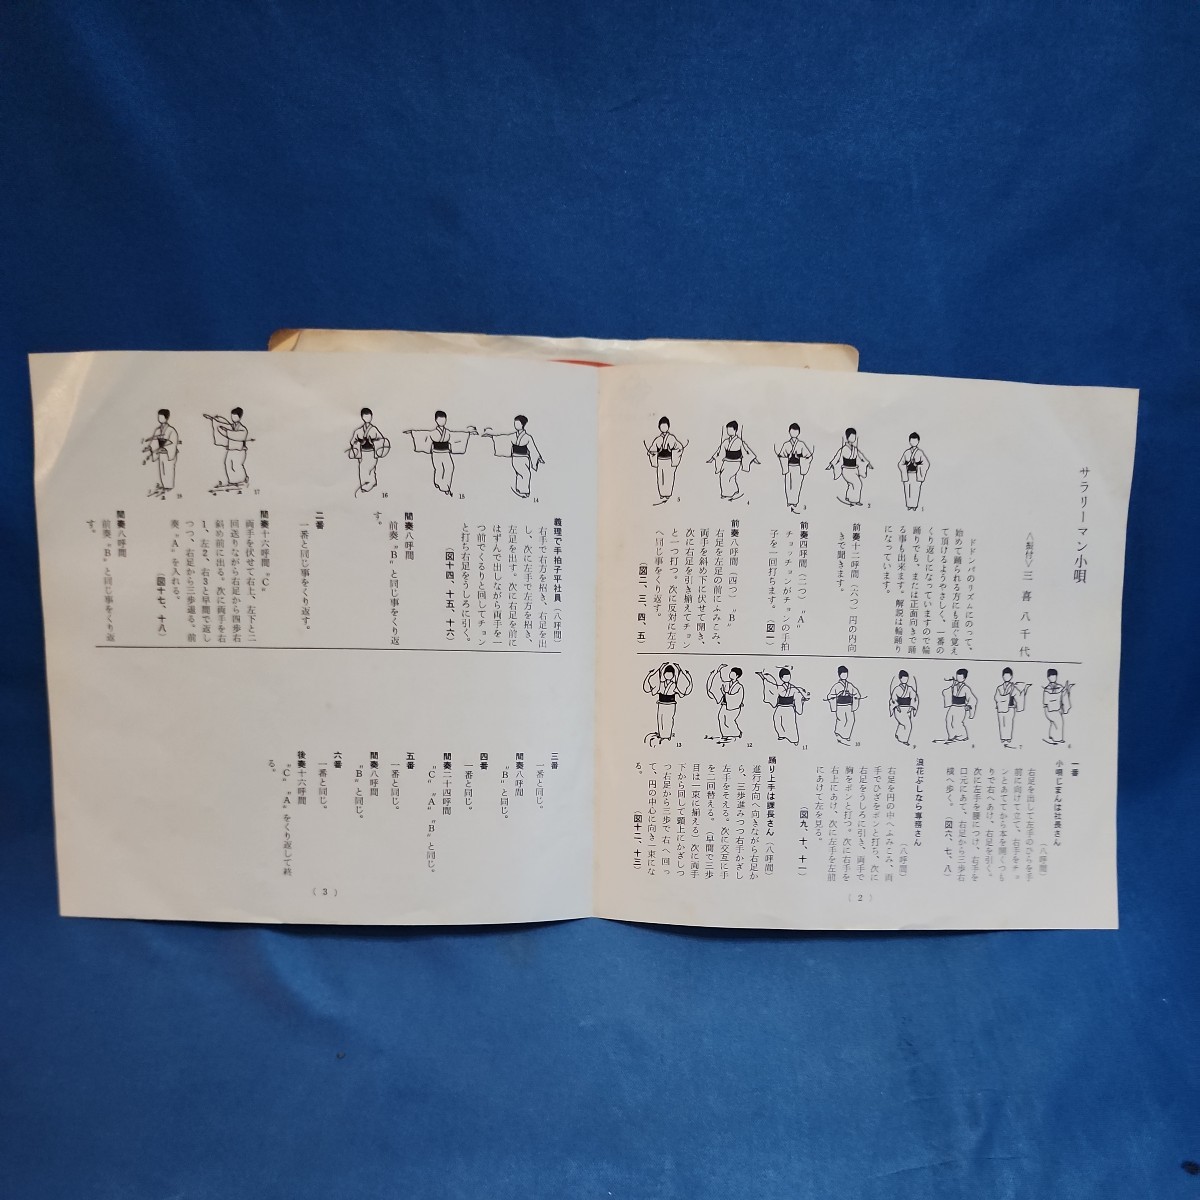 サラリーマン小唄
〈振付〉三喜八千代
ドドンパのリズムにのって、
始めて踊られる方にも直ぐ覚え
て頂けるようやさしく、一番の
くり返しになっていますので輪
踊りでも、または正面向きで踊
る事も出来ます。解説は輪踊り
になっています。
前奏十二呼間（六つ）円の内向
きで聞きます。
前奏四呼間（二つ）〝A〟
チョッチョンがチョンの手拍
子を一回打ちます。
（図一）
前奏八呼間（四つ）〝B〟
右足を左足の前にふみこみ、
両手を斜め下に伏せて開き、
次に右足を引き揃えてチョン
と一つ打つ。次に反対に左方
へ同じ事をくり返す。
（図二、三、四、五）
1
2
3
4
5
一番
小唄じまんは社長さん
（八呼間）
右足を出して左手のひらを手
前に向けて立て、右手をチョ
ンとあててから本を開くつも
りで右へあけ、右足を引く。
次に左手を腰につけ、右手を
口元にあて、右足から三歩右
横へ歩く。（図六、七、八）
浪花ぶしなら専務さん
（八呼間）
右足を円の中へふみこみ、両
手でひざをポンと打ち、次に
右足をうしろに引き、両手で
胸をポンと打つ。次に右手を
右上にあけ、次に左手を左前
にあけて左を見る。
（図九、十、十一）
踊り上手は課長さん（八呼間）
進行方向へ向きながら右足か
ら、三歩進みつつ右手かざし
左手をそえる。次に交互に手
を二回替える。（早間で三歩
目は一束に揃える）次に両手
下から回して頭上にかざしつ
つ右足から三歩で右へ回っ
て、円の中心に向き一束にな
る。
（図十二、十三）
6
7
8
9
10
11
12
13
（2）
義理で手拍子平社員（八呼間）
右手で右方を招き、右足を出
し、次に左手で左方を招き、
左足を出す。次に右足を前に
はずんで出しながら両手を一
つ前でくるりと回してチョン
と打ち右足をうしろに引く。
（図十四、十五、十六）
間奏八呼間
前奏〝B〟と同じ事をくり返
す。
二番
一番と同じ事をくり返す。
間奏十六呼間〝C〟
両手を伏せて右上、左下と二
回送りながら右足から四歩右
斜め前に出る。次に両手を右
1、左2、右3と早間で返し
つつ、右足から三歩退る。前
奏〝A〟を入れる。
（図十七、十八）
間奏八呼間
前奏〝B〟と同じ事をくり返
す。
14
15
16
17
18
三番
一番と同じ。
間奏八呼間
〝B〟と同じ。
四番
一番と同じ。
間奏二十四呼間
〝C〟〝A〟〝B〟と同じ。
五番
一番と同じ。
間奏八呼間
〝B〟と同じ。
六番
一番と同じ。
後奏十六呼間
〝C〟〝A〟をくり返して終
る。
（3）